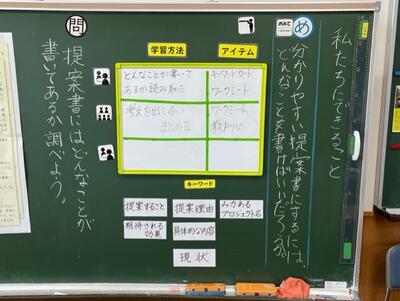 私たちにできること
め
分かりやすい提案書にするには、
どんなことを書けばいいだろうか。
学習方法
アイテム
どんなことが書いて
あるか読み取る
キーワード
ワークシート
考えを出し合い
まとめる
ワークシート
キーワード
提案すること
提案理由
みりょくある
プロジェクト名
期待される
効果
具体的な内容
現状
問
提案書にはどんなことが
書いてあるか調べよう。